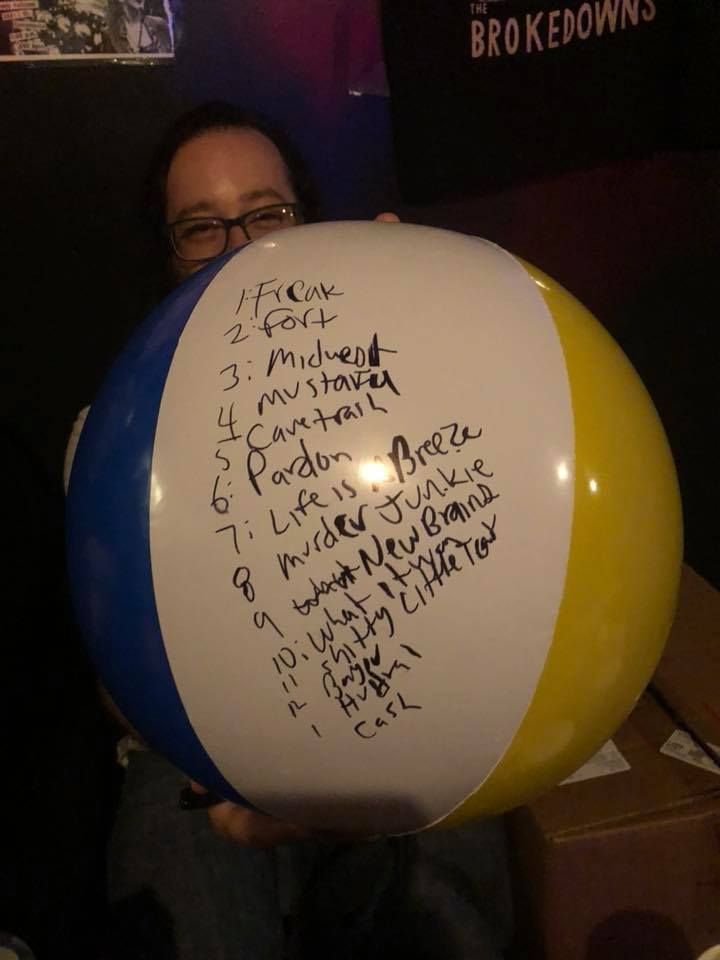 THE
BROKEDOWNS
1: Freak
2: Fort
3: Midwest
4 mustard
5 Cavetrash
6: Pardon
7: Life is A Breeze
8 murder Junkie
9 New Brains
10: What
11 shitty Little Test
12
1
Cash